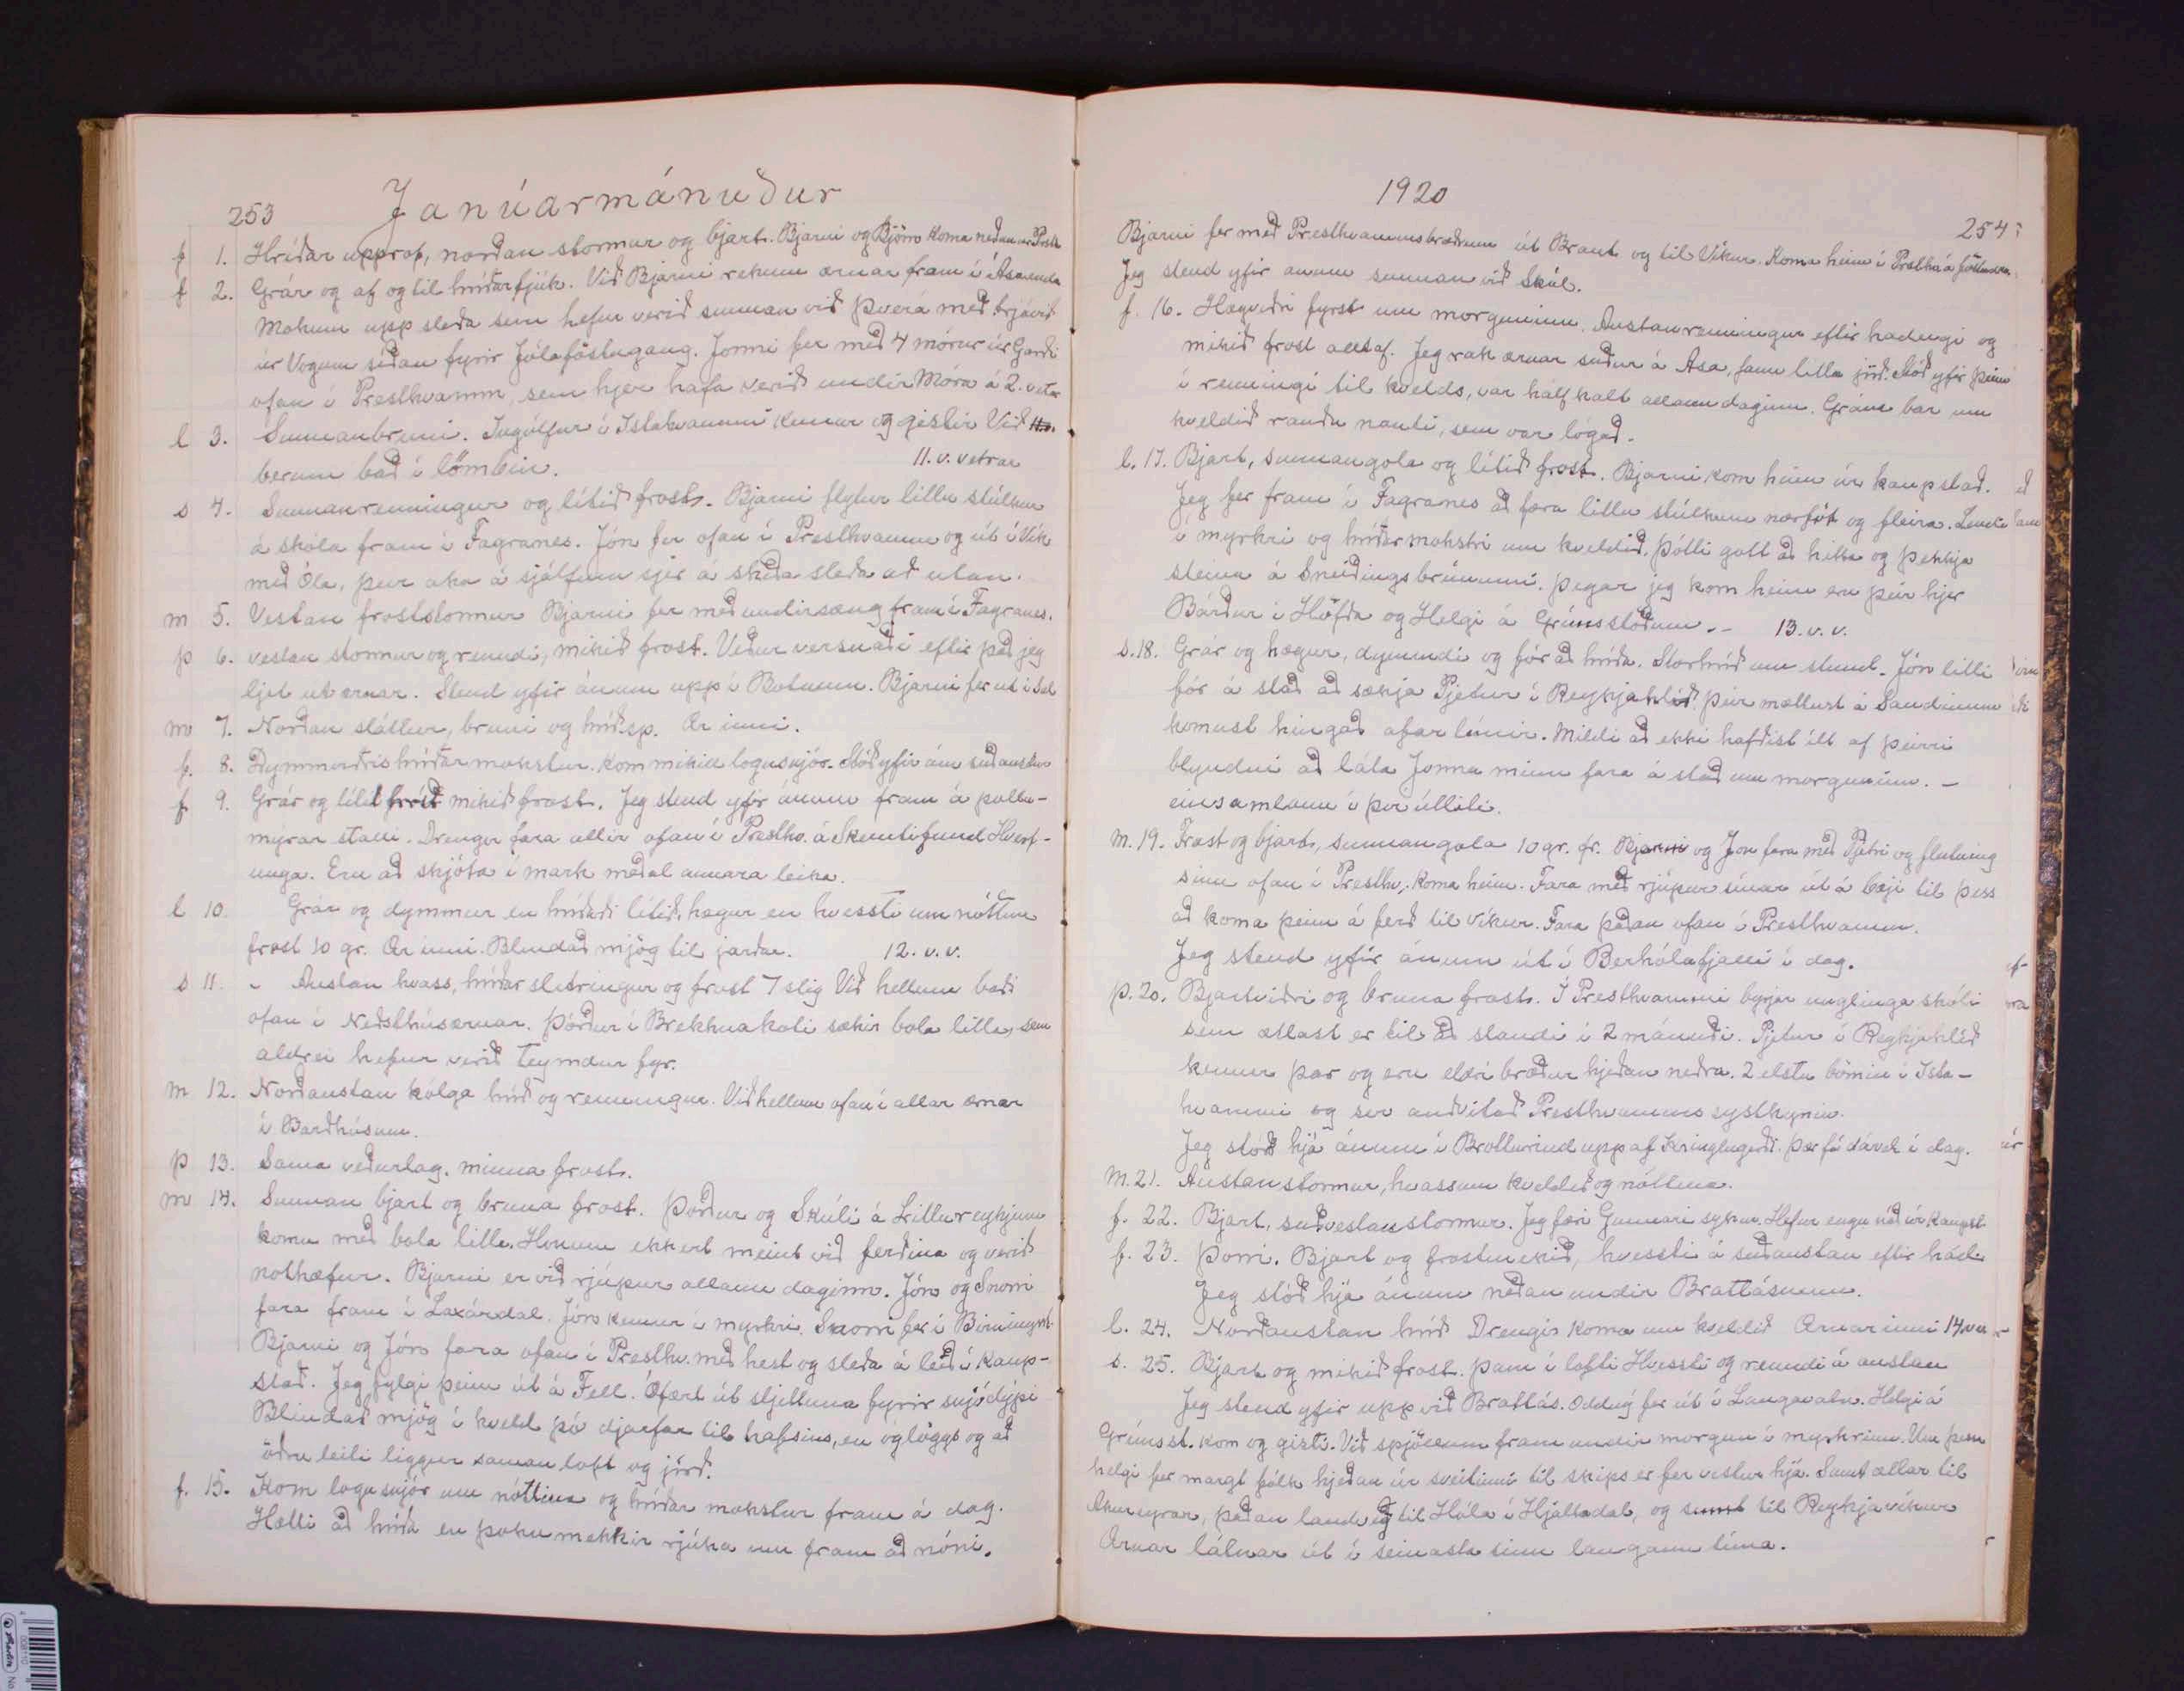 253 Janúarmánuður
f 1. Hríðar upprof, norðan stormur og bjart. Bjarni og Björn koma neðan úr Presth
f 2. Grár og af og til hríðarfjúk. Við Bjarni rekum ærnar fram í Ásaenda
Mokum upp sleða sem hefur verið sunnan við Þverá með trjávið
úr Vogum síðan fyrir Jólaföstugang. Jonni fer með 4 mórur úr Garði
ofan í Presthvamm, sem hjer hafa verið undir Móra á 2. vetur
l 3. Sunnanbruni. Ingólfur í Ystahvammi kemur og gistir Við
berum bað í lömbin. 11. v. vetrar
s 4. Sunnanrenningur og lítið frost. Bjarni flytur litlu stúlkuna
á skóla fram í Fagranes. Jón fer ofan í Presthvamm og út í Vík
með Óla, þeir aka á sjálfum sjer á skíða sleða að utan.
m 5. Vestan froststormur Bjarni fer með undirsæng fram í Fagranes.
þ 6. vestan stormur og renndi, mikið frost. Veður versnaði eftir það jeg
ljet út ærnar. Stend yfir ánum upp í Botnum. Bjarni fer út í Sel
m 7. Norðan sláttur, bruni og hríð.sp. Ær inni.
f. 8. Dymmviðris hríðar mokstur. kom mikill logusnjór. Stóð yfir ám suðaustur
f 9. Grár og lítil hríð mikið frost. Jeg stend yfir ánum fram á pollu-
mýrar stalli. Drengir fara allir ofan í Presthv. á Skemtifund Hverf-
unga. Eru að skjóta í mark meðal annara leika.
l 10. Grár og dymmur en hríðaði lítið, hægur en hvessti um nóttina
frost 10 gr. Ær inni. Blindað mjög til jarðar. 12. v. v.
s 11. Austan hvass, hríðar slitringur og frost 7 stig Við hellum baði
ofan í Neðsthúsærnar. Þórður í Brekknakoti sækir bola litla, sem
aldrei hefur verið teymdur fyr.
m 12. Norðaustan kólga hríð og renningur. Við hellum ofan í allar ærnar
í Barðhúsum.
þ 13. Sama veðurlag. minna frost.
m 14. Sunnan bjart og bruna frost. Þórður og Skúli á Litlureykjum
komu með bola litla. Honum ekkert meint við ferðina og verið
nothæfur. Bjarni er við rjúpur allann daginn. Jón og Snorri
fara fram í Laxárdal. Jón kemur í myrkri. Snorri fer í Birningsst.
Bjarni og Jón fara ofan í Presthv. með hest og sleða á leið í kaup-
stað. Jeg fylgi þeim út á Fell. Ófært út sljettuna fyrir snjódýpi
Blindað mjög í kveld þó djarfar til hafsins, en óglöggt og að
öðru leiti liggur saman loft og jörð.
f. 15. Kom logusnjór um nóttina og hríðar mokstur fram á dag.
Hætti að hríða en þoku mekkir rjúka um fram að nóni.
1920
254
Bjarni fer með Presthvammsbræðrum út Braut og til Víkur. Koma heim í Presthv á föstudag.
Jeg stend yfir ánum sunnan við Skál.
f. 16. Hægviðri fyrst um morguninn. Austanrenningur eftir hádegi og
mikið frost alltaf. Jeg rak ærnar suður á Ása, fann litla jörð. Stóð yfir þeim
í renningi til kvelds, var hálf kalt allann daginn. Grána bar um
kveldið rauðu nauti, sem var lógað.
l. 17. Bjart, sunnangola og lítið frost. Bjarni kom heim úr kaupstað.
Jeg fer fram í Fagranes að færa litlu stúlkunni nærföt og fleira. Lenti
í myrkri og hríðarmokstri um kveldið. Þótti gott að hitta og þekkja
steina á Sneiðingsbrúninni. Þegar jeg kom heim eru þeir hjer
Bárður í Höfða og Helgi á Grímsstöðum. - 13. v. v.
s. 18. Grár og hægur, dymmdi og fór að hríða. Stórhríð um stund. Jón litli
fór á stað að sækja Pjetur í Reykjahlíð. Þeir mættust á Sandinum
komust hingað afar lúnir. Mildi að ekki hafðist illt af þeirri
blyndni að láta Jonna minn fara á stað um morguninn. -
einsamlann í því útliti.
m. 19. Frost og bjart, sunnangola 10 gr. fr. Bjarni og Jón fara með Pjetri og flutning
sinn ofan í Presthv. Koma heim. Fara með rjúpur sínar út á bæji til þess
að koma þeim á ferð til víkur. Fara þaðan ofan í Presthvamm.
Jeg stend yfir ánum út í Berhólafjalli í dag.
þ. 20. Bjartviðri og bruna frost. Í Presthvammi byrjar unglinga skóli
sem ætlast er til að standi í 2 mánuði. Pjetur í Reykjahlíð
kennir þar og eru eldri bræður hjeðan neðra. 2 elstu börnin í Ysta-
hvammi og svo auðvitað Presthvamms systkynin.
Jeg stóð hjá ánum í Brotturind upp af Kringlugerði. Þær fá dável í dag.
m. 21. Austanstormur, hvassum kveldið og nóttina.
f. 22. Bjart, suðvestanstormur. Jeg færi Gunnari sykur. Hefur engu náð úr kaupst.
f. 23. Þorri. Bjart og frostmikið, hvessti á suðaustan eftir hád.
Jeg stóð hjá ánum neðan undir Brattásnum.
l. 24. Norðaustan hríð Drengir koma um kveldið Ærnar inni 14 v v
s. 25. Bjart og mikið frost. þam í lofti Hvessti og renndi á austan
Jeg stend yfir upp við Brattás. Oddný fer út í Langavatn. Helgi á
Grímsst. kom og gisti. Við spjöllum fram undir morgun í myrkrinu. Um þessa
helgi fer margt fólk hjeðan úr sveitinni til skips er fer vestur hjá. Sumt ætlar til
Akureyrar, þaðan landveg til Hóla í Hjaltadal, og sumt til Reykjavíkur
Ærnar látnar út í seinasta sinn langann tíma.